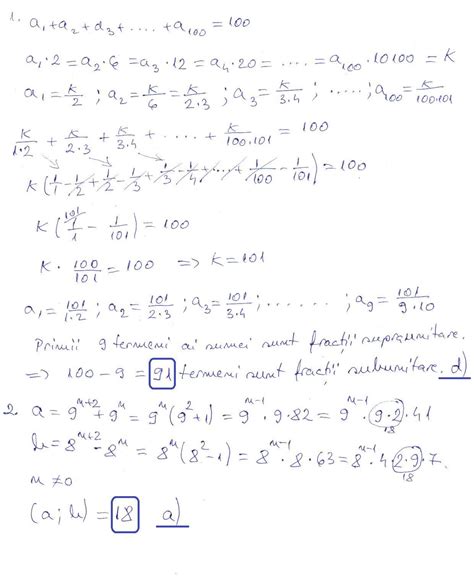 1. a₁+a₂+a₃+.....+a₁₀₀=100
a₁·2=a₂·6=a₃·12=a₄·20=.....=a₁₀₀·10100=K
a₁=K/2; a₂=K/6=K/2·3; a₃=K/3·4; .....; a₁₀₀=K/100·101
K/1·2+K/2·3+K/3·4+.....+K/100·101=100
K(1/1-1/2+1/2-1/3+1/3-1/4+...+1/100-1/101)=100
K(101/1-1/101)=100
K·100/101=100 => K=101
a₁=101/1·2; a₂=101/2·3; a₃=101/3·4; ......; a₉=101/9·10
Primii 9 termeni ai sumei sunt fracții supraunitare.
=> 100-9=91 termeni sunt fracții subunitare. d)
2. a=9ⁿ⁺²+9ⁿ=9ⁿ(9²+1)=9ⁿ⁻¹·9·82=9ⁿ⁻¹·9·2·41
18
b=8ⁿ⁺²-8ⁿ=8ⁿ(8²-1)=8ⁿ⁻¹·8·63=8ⁿ⁻¹·4·2·9·7.
18
n≠0
(a;b)=18 a)